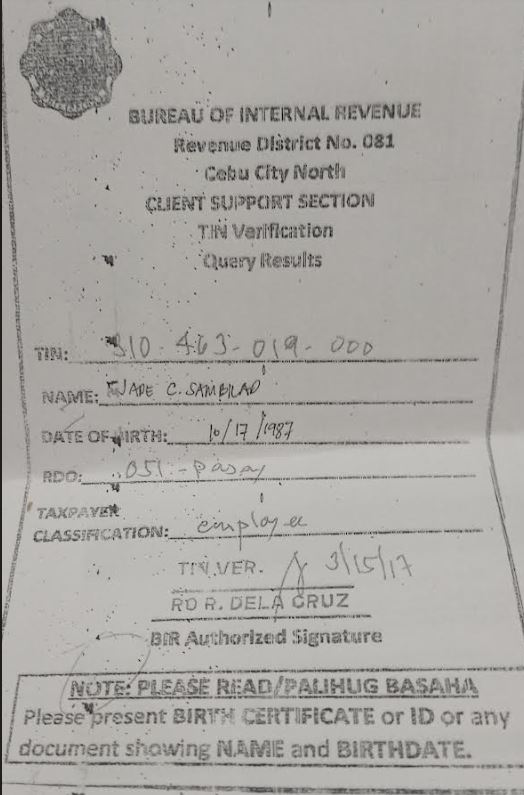 BUREAU OF INTERNAL REVENUE
Revenue District No. 081
Cebu City North
CLIENT SUPPORT SECTION
TIN Verification
Query Results
TIN: 310-463-019-000
NAME: JADE C. SAMBILAD
DATE OF BIRTH: 10/17/1987
RDO: 051-Pasay
TAXPAYER
CLASSIFICATION: employee
TIN VER. 3/15/17
RO R. DELA CRUZ
BIR Authorized Signature
NOTE: PLEASE READ/PALIHUG BASAHA
Please present BIRTH CERTIFICATE or ID or any
document showing NAME and BIRTHDATE.